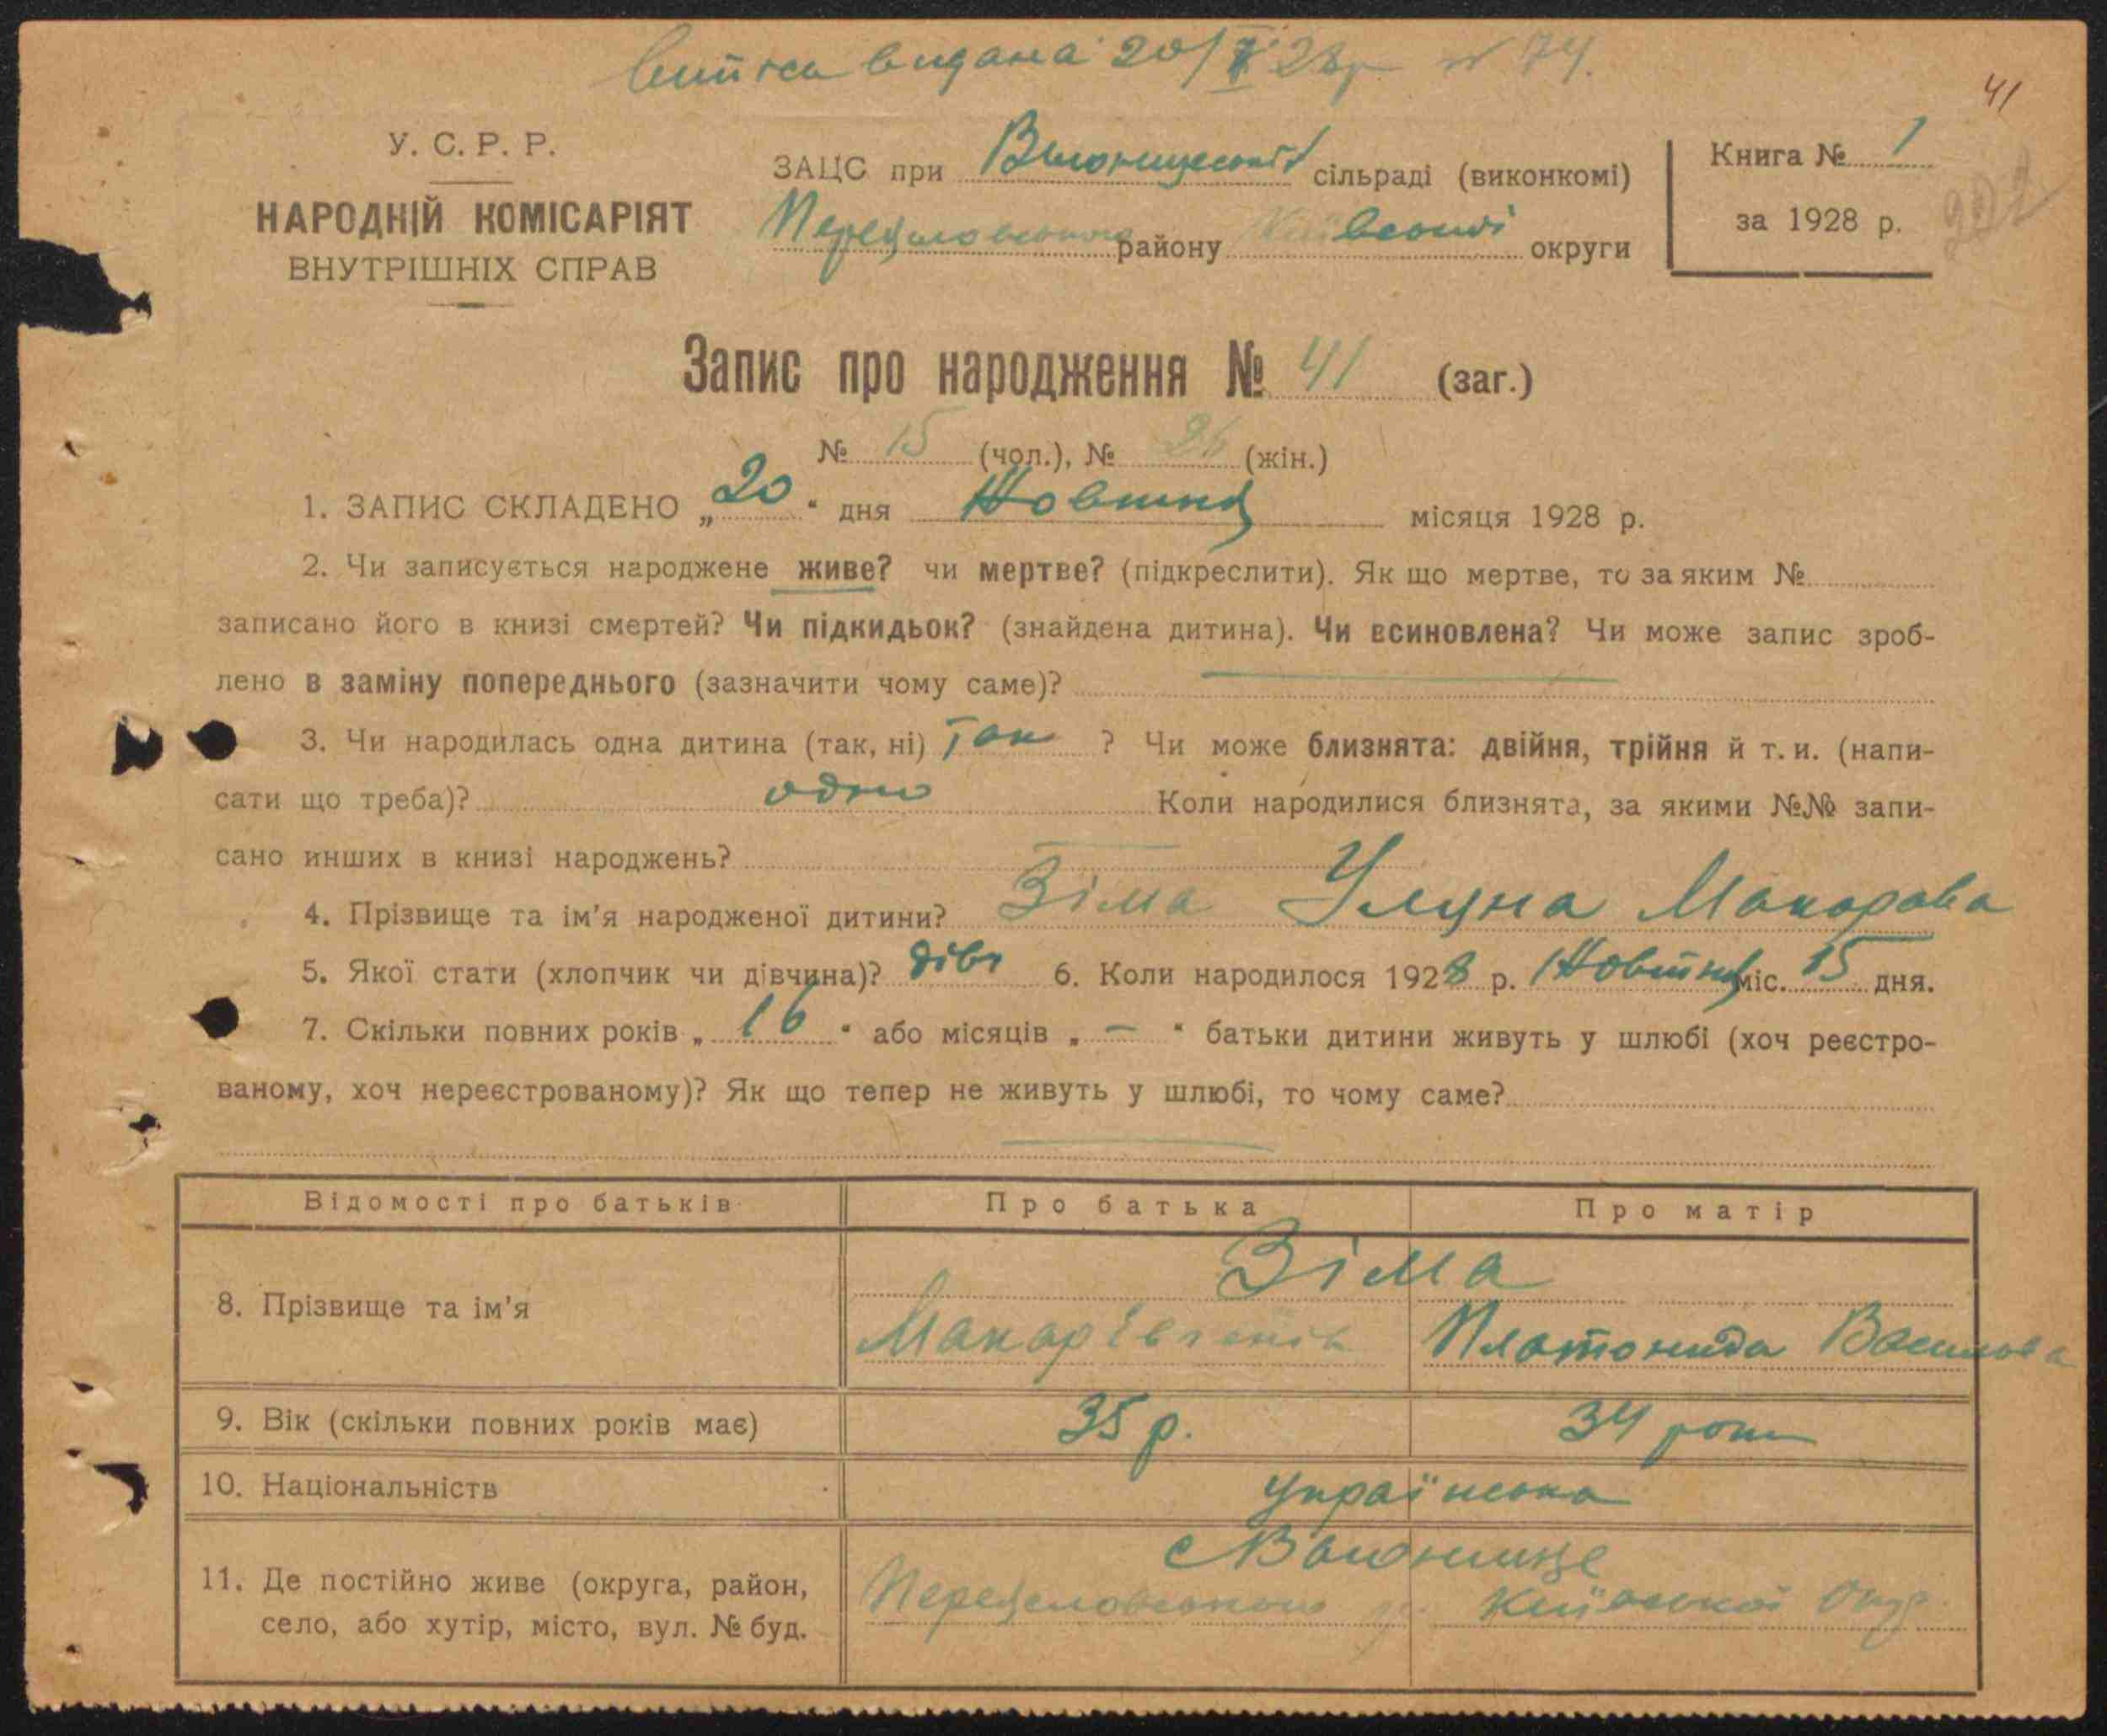 виписка видана 20/X 28р. № 74.
41
У. С. Р. Р.
НАРОДНІЙ КОМІСАРІЯТ
ВНУТРІШНІХ СПРАВ
ЗАЦС при сільраді (виконкомі)
району округи
Книга № 1
за 1928 р.
Запис про народження № 41 (заг.)
№ 15 (чол.), № 26 (жін.)
1. ЗАПИС СКЛАДЕНО „20“ дня Жовтня місяця 1928 р.
2. Чи записується народжене живе? чи мертве? (підкреслити). Як що мертве, то за яким №
записано його в книзі смертей? Чи підкидьок? (знайдена дитина). Чи всиновлена? Чи може запис зроб-
лено в заміну попереднього (зазначити чому саме)?
3. Чи народилась одна дитина (так, ні) Так ? Чи може близнята: двійня, трійня й т. и. (напи-
сати що треба)? одно Коли народилися близнята, за якими №№ запи-
сано инших в книзі народжень?
4. Прізвище та ім'я народженої дитини? Зіма Уляна Макарова
5. Якої стати (хлопчик чи дівчина)? дівч 6. Коли народилося 1928 р. Жовтня міс. 15 дня.
7. Скільки повних років „16“ або місяців „—“ батьки дитини живуть у шлюбі (хоч реєстро-
ваному, хоч нереєстрованому)? Як що тепер не живуть у шлюбі, то чому саме?
Відомості про батьків Про батька Про матір
Зіма
8. Прізвище та ім'я Макар Платонида Василова
9. Вік (скільки повних років має) 35 р. 34 роки
10. Національність Українська
11. Де постійно живе (округа, район,
село, або хутір, місто, вул. № буд.
Київської Окр.